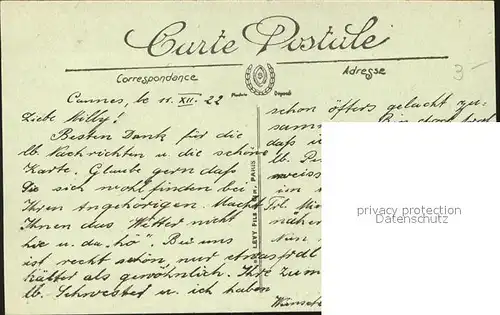 Carte Postale
Correspondance
Adresse
3
Modèle Déposé
Cannes, le 11. XII. 22
Liebe Milly!
Besten Dank für die
lb. Nachrichten u. die schöne
Karte. Glaube gern daß
Sie sich wohl finden bei
Ihren Angehörigen. Macht
Ihnen das Wetter nicht
hie u. da "hö". Bei uns
ist recht schön, nur etwas
kälter als gewöhnlich. Ihre
lb. Schwester u. ich haben
LEVY FILS & CIE, PARIS
schon öfters gelacht zu-
samm
daß i
lb. Pe
weiss
im
Frl. Mi
näher
Nun
zum
Wünsch
privacy protection
Datenschutz